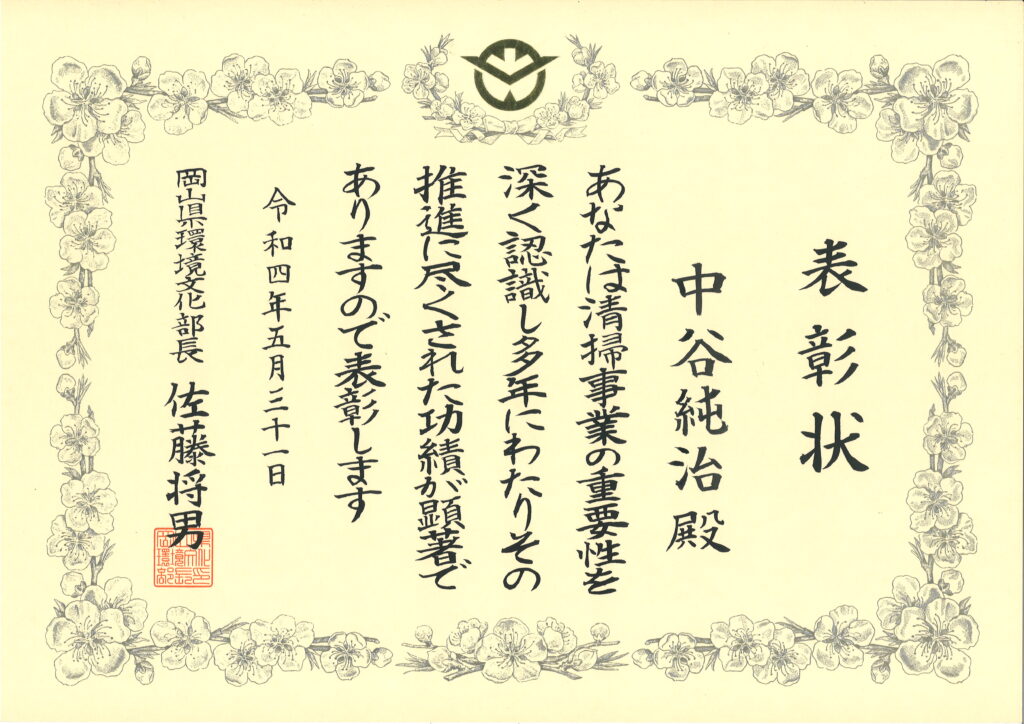 表彰状
中谷純治殿
あなたは清掃事業の重要性を
深く認識し多年にわたりその
推進に尽くされた功績が顕著で
ありますので表彰します
令和四年五月三十一日
岡山県環境文化部長 佐藤将男